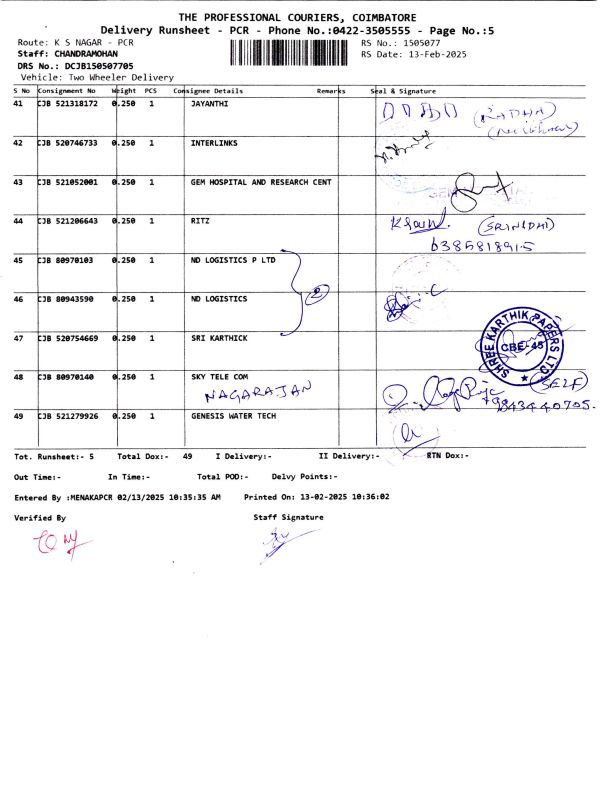 THE PROFESSIONAL COURIERS, COIMBATORE
Delivery Runsheet - PCR - Phone No.:0422-3505555 - Page No.:5
Route: K S NAGAR - PCR RS No.: 1505077
Staff: CHANDRAMOHAN RS Date: 13-Feb-2025
DRS No.: DCJB150507705
Vehicle: Two Wheeler Delivery
S No Consignment No Weight PCS Consignee Details Remarks Seal & Signature
41 CJB 521318172 0.250 1 JAYANTHI
(RADHA)
42 CJB 520746733 0.250 1 INTERLINKS
43 CJB 521052001 0.250 1 GEM HOSPITAL AND RESEARCH CENT
GEM
44 CJB 521206643 0.250 1 RITZ
(SRINIDHI)
6385818915
45 CJB 80970103 0.250 1 ND LOGISTICS P LTD
46 CJB 80943590 0.250 1 ND LOGISTICS
2
47 CJB 520754669 0.250 1 SRI KARTHICK
SHREE KARTHIK PAPERS LTD.
CBE-45
★
48 CJB 80970140 0.250 1 SKY TELE COM
NAGARAJAN
(SELF)
9843440705.
49 CJB 521279926 0.250 1 GENESIS WATER TECH
Tot. Runsheet:- 5 Total Dox:- 49 I Delivery:- II Delivery:- RTN Dox:-
Out Time:- In Time:- Total POD:- Delvy Points:-
Entered By :MENAKAPCR 02/13/2025 10:35:35 AM Printed On: 13-02-2025 10:36:02
Verified By Staff Signature